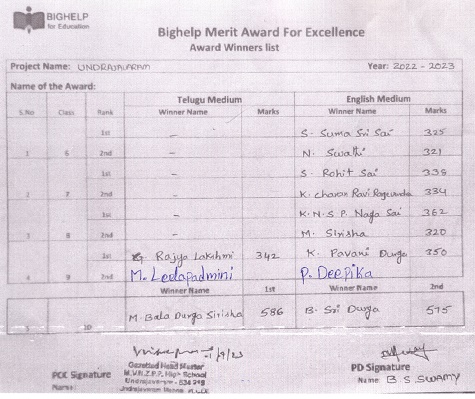 BIGHELP
for Education
Bighelp Merit Award For Excellence
Award Winners list
Project Name: UNDRAJAVARAM Year: 2022 - 2023
Name of the Award:
Telugu Medium English Medium
S.No Class Rank Winner Name Marks Winner Name Marks
1st - S. Suma Sri Sai 325
1 6 2nd - N. Swathi 321
1st - S. Rohit Sai 338
2 7 2nd - K. charan Ravi 334
1st - K.N.S.P. Naga Sai 362
3 8 2nd - M. Sirisha 320
1st G Rajya Lakshmi 342 K. Pavani Durga 350
4 9 2nd M. Leelapadmini P. Deepika
Winner Name 1st Winner Name 2nd
5 10 M. Bala Durga Sirisha 586 B. Sri Durga 575
PCC Signature
Name:
Gazetted Head Master
M.V.R.Z.P.P. High School
Undrajavaram - 534 218
Undrajavaram
PD Signature
Name: B S SWAMY